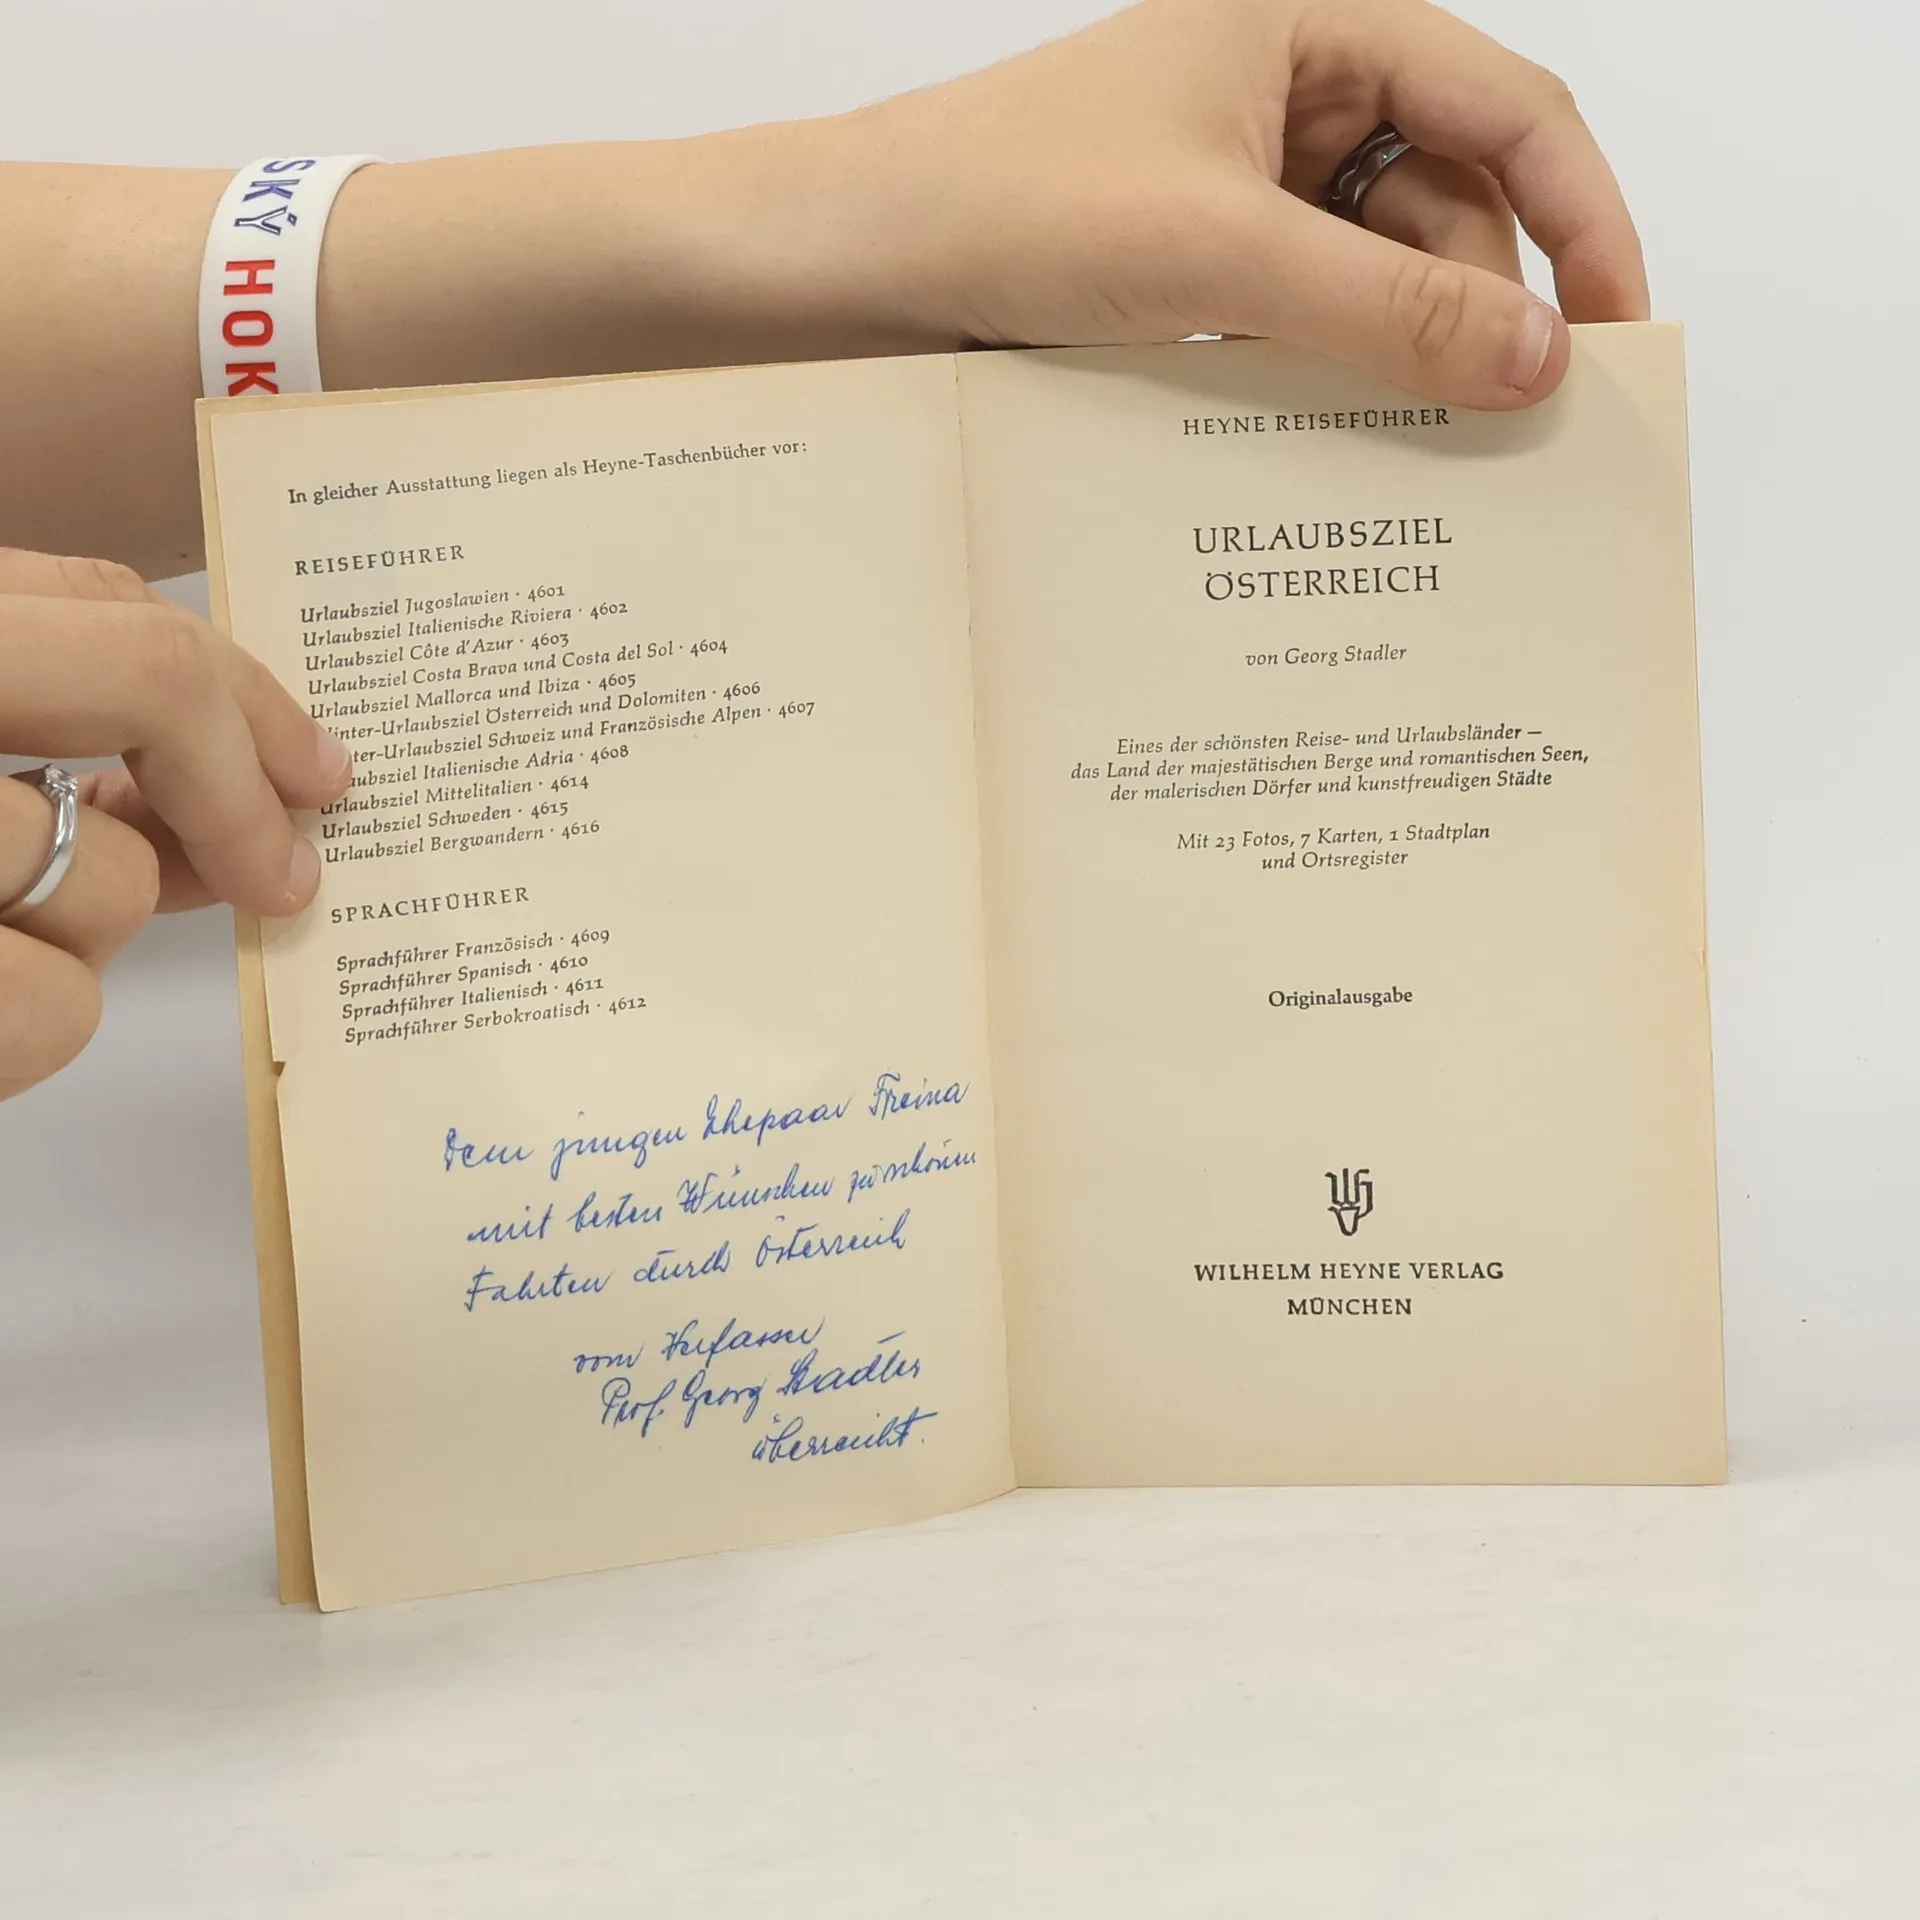 SKÝ HOK
In gleicher Ausstattung liegen als Heyne-Taschenbücher vor:
REISEFÜHRER
Urlaubsziel Jugoslawien · 4601
Urlaubsziel Italienische Riviera · 4602
Urlaubsziel Côte d'Azur · 4603
Urlaubsziel Costa Brava und Costa del Sol · 4604
Urlaubsziel Mallorca und Ibiza · 4605
inter-Urlaubsziel Österreich und Dolomiten · 4606
ter-Urlaubsziel Schweiz und Französische Alpen · 4607
aubsziel Italienische Adria · 4608
Urlaubsziel Mittelitalien · 4614
Urlaubsziel Schweden · 4615
Urlaubsziel Bergwandern · 4616
SPRACHFÜHRER
Sprachführer Französisch · 4609
Sprachführer Spanisch · 4610
Sprachführer Italienisch · 4611
Sprachführer Serbokroatisch · 4612
Dem jungen Ehepaar Freina
mit besten Wünschen zu schönen
Fahrten durch Österreich
vom Verfasser
Prof. Georg Stadler
überreicht.
HEYNE REISEFÜHRER
URLAUBSZIEL
ÖSTERREICH
von Georg Stadler
Eines der schönsten Reise- und Urlaubsländer —
das Land der majestätischen Berge und romantischen Seen,
der malerischen Dörfer und kunstfreudigen Städte
Mit 23 Fotos, 7 Karten, 1 Stadtplan
und Ortsregister
Originalausgabe
WILHELM HEYNE VERLAG
MÜNCHEN